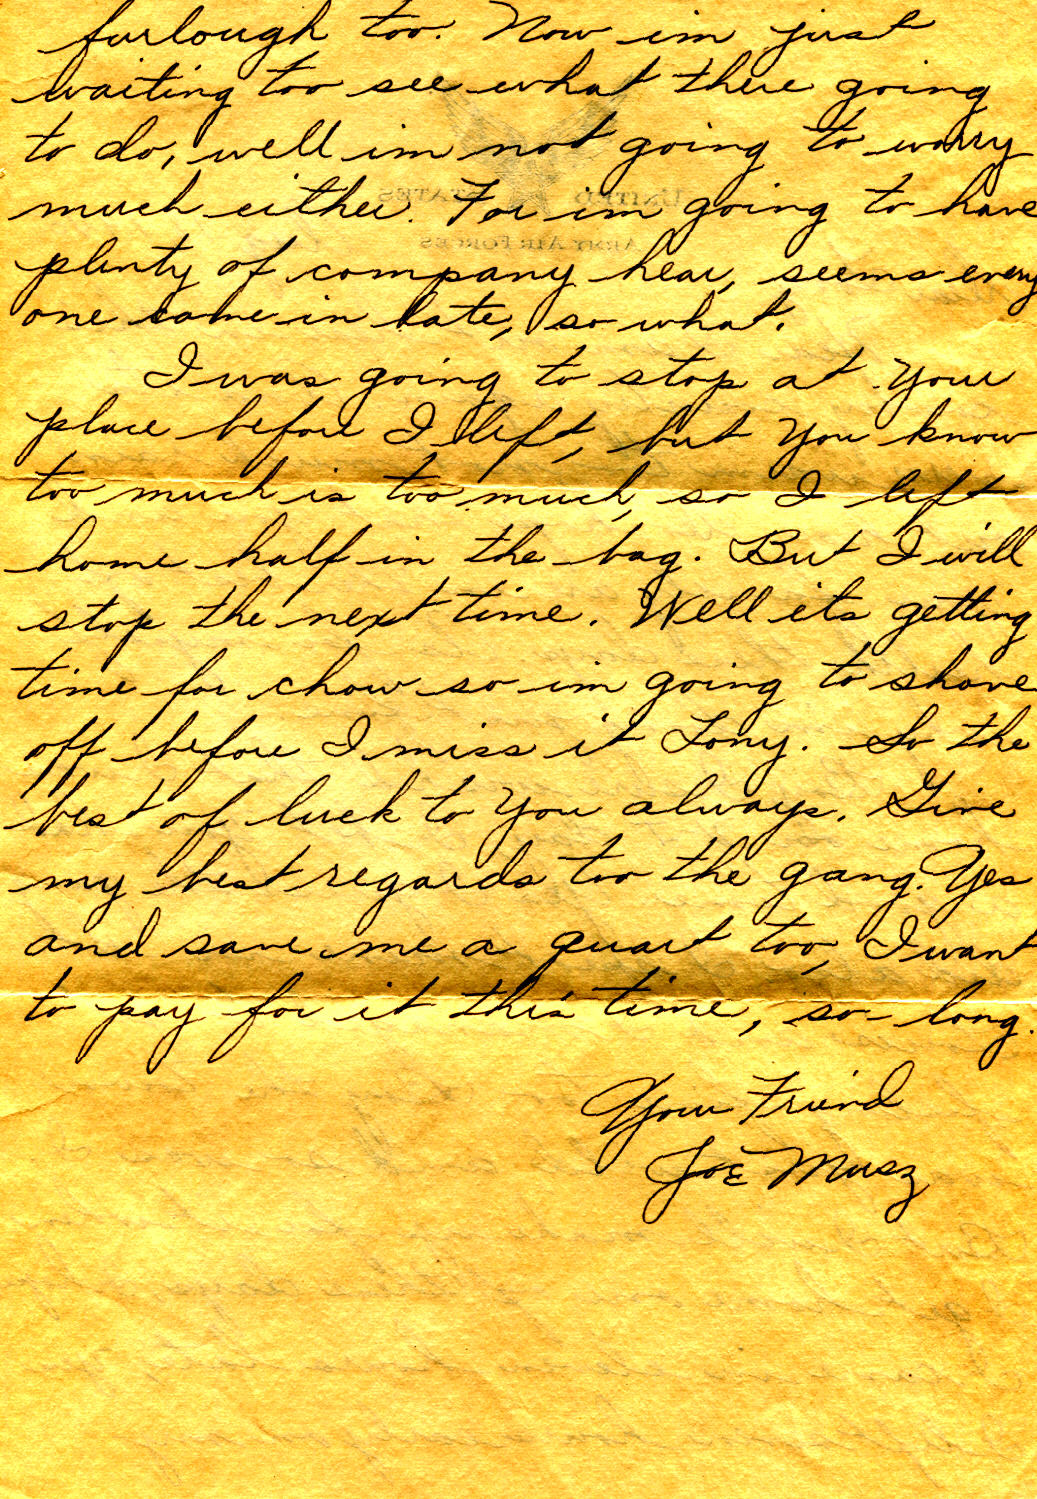 furlough too. Now im just
waiting too see what there going
to do, well im not going to worry
much either. For im going to have
plenty of company hear, seems every
one came in late, so what.
I was going to stop at your
place before I left, but you know
too much is too much, so I left
home half in the bag. But I will
stop the next time. Well its getting
time for chow so im going to shove
off before I miss it Tony. So the
best of luck to you always. Give
my best regards too the gang. Yes
and save me a quart too, I want
to pay for it this time, so-long.
Your Friend
Joe Musz
UNITED STATES
ARMY AIR FORCES